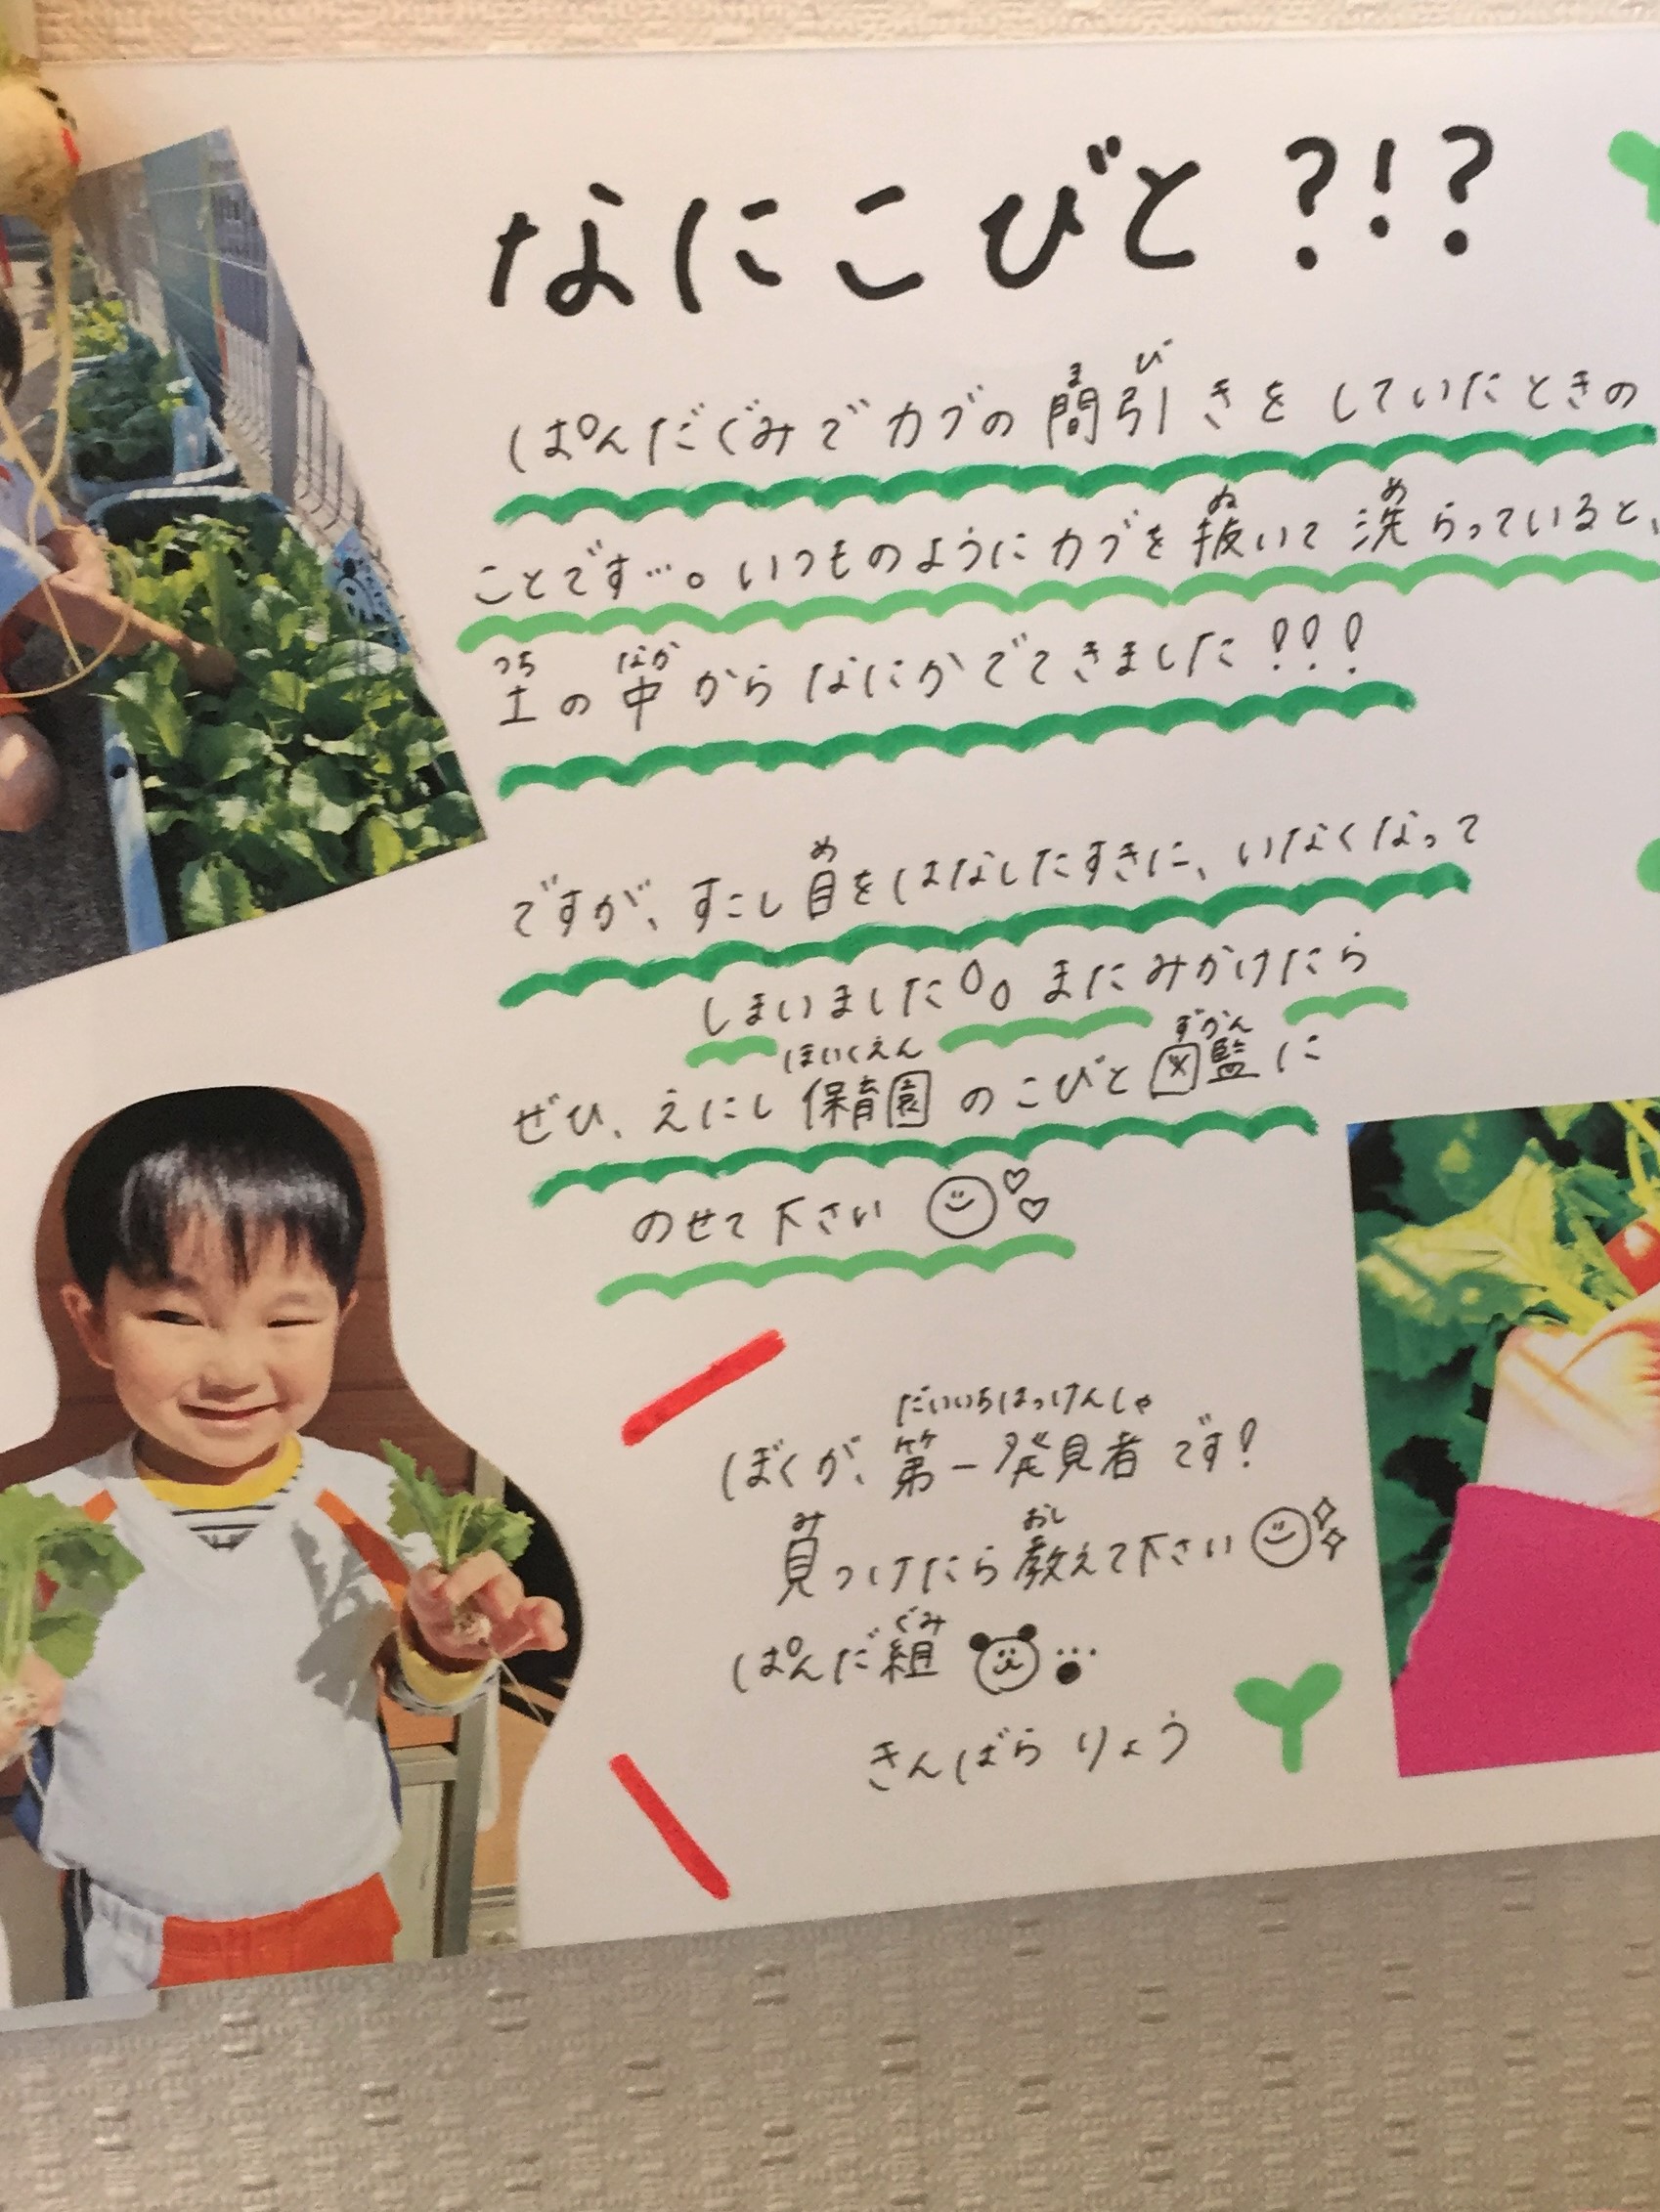 なにこびと?!?
ぱんだぐみでカブの間引きをしていたときの
ことです…。いつものようにカブを抜いて洗らっていると、
土の中からなにかでてきました!!!
ですが、すこし目をはなしたすきに、いなくなって
しまいました。。またみかけたら
ぜひ、えにし保育園のこびと図監に
のせて下さい
ぼくが、第一発見者です!
見つけたら教えて下さい
ぱんだ組
きんばらりょう